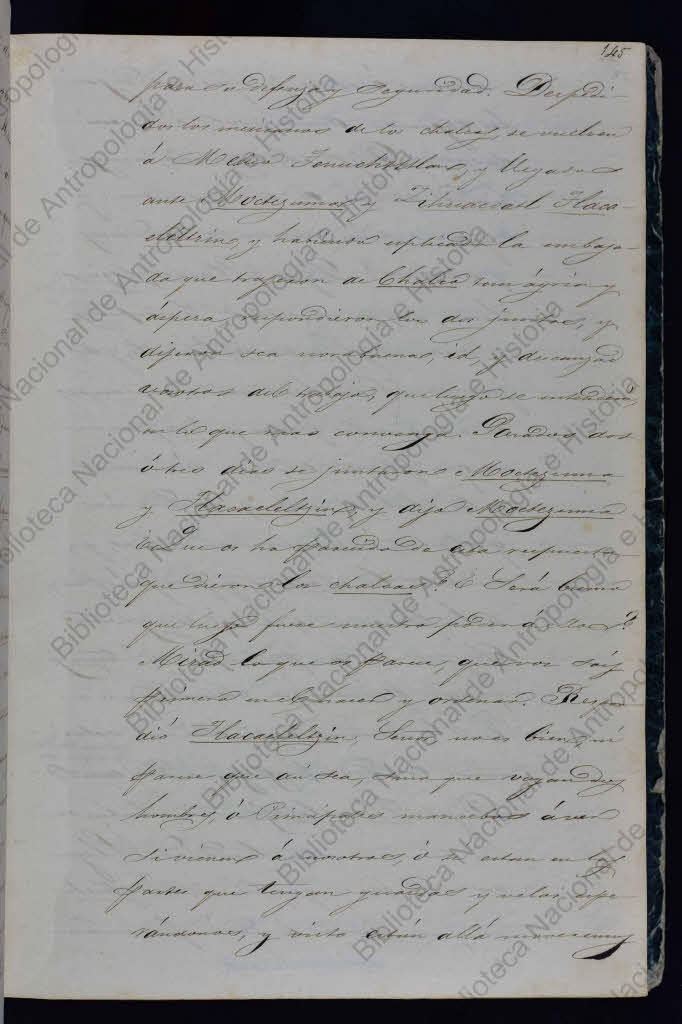 145
para su defenza y seguridad. Despedi-
dos los mexicanos de los chalcas, se vuelven
á Mexico Tenuchtitlan, y llegados
ante Moctezuma y Zihuacoatl Tlaca-
eleltzin, y habiendo esplicado la embaja-
da que trageron de Chalco tan ágria y
áspera respondieron los dos juntos, y
digeron sea norabuena, id, y descanzad
vosotros del trabajo, que luego se entenderá
en lo que mas convenga. Pasados dos
ó tres dias se juntaron Moctezuma
y Tlacaeleltzin, y dijo Moctezuma
¿Que os ha parecido de esta respuesta
que dieron los chalcas? ¿Será bueno
que luego fuese nuestro poder á ellos?
Mirad lo que os parece, que vos sois
primero en el hacer y ordenar. Respon-
dió Tlacaeleltzin, Senor, no es bien, ni
parece que asi sea, sino que vayan dos
hombres, ó Principales mancebos á ver
si vienen á nosotros, ó si estan en
partes que tengan guardas y velas espe-
rándonos, y visto están allá
Biblioteca Nacional de Antropología e Historia